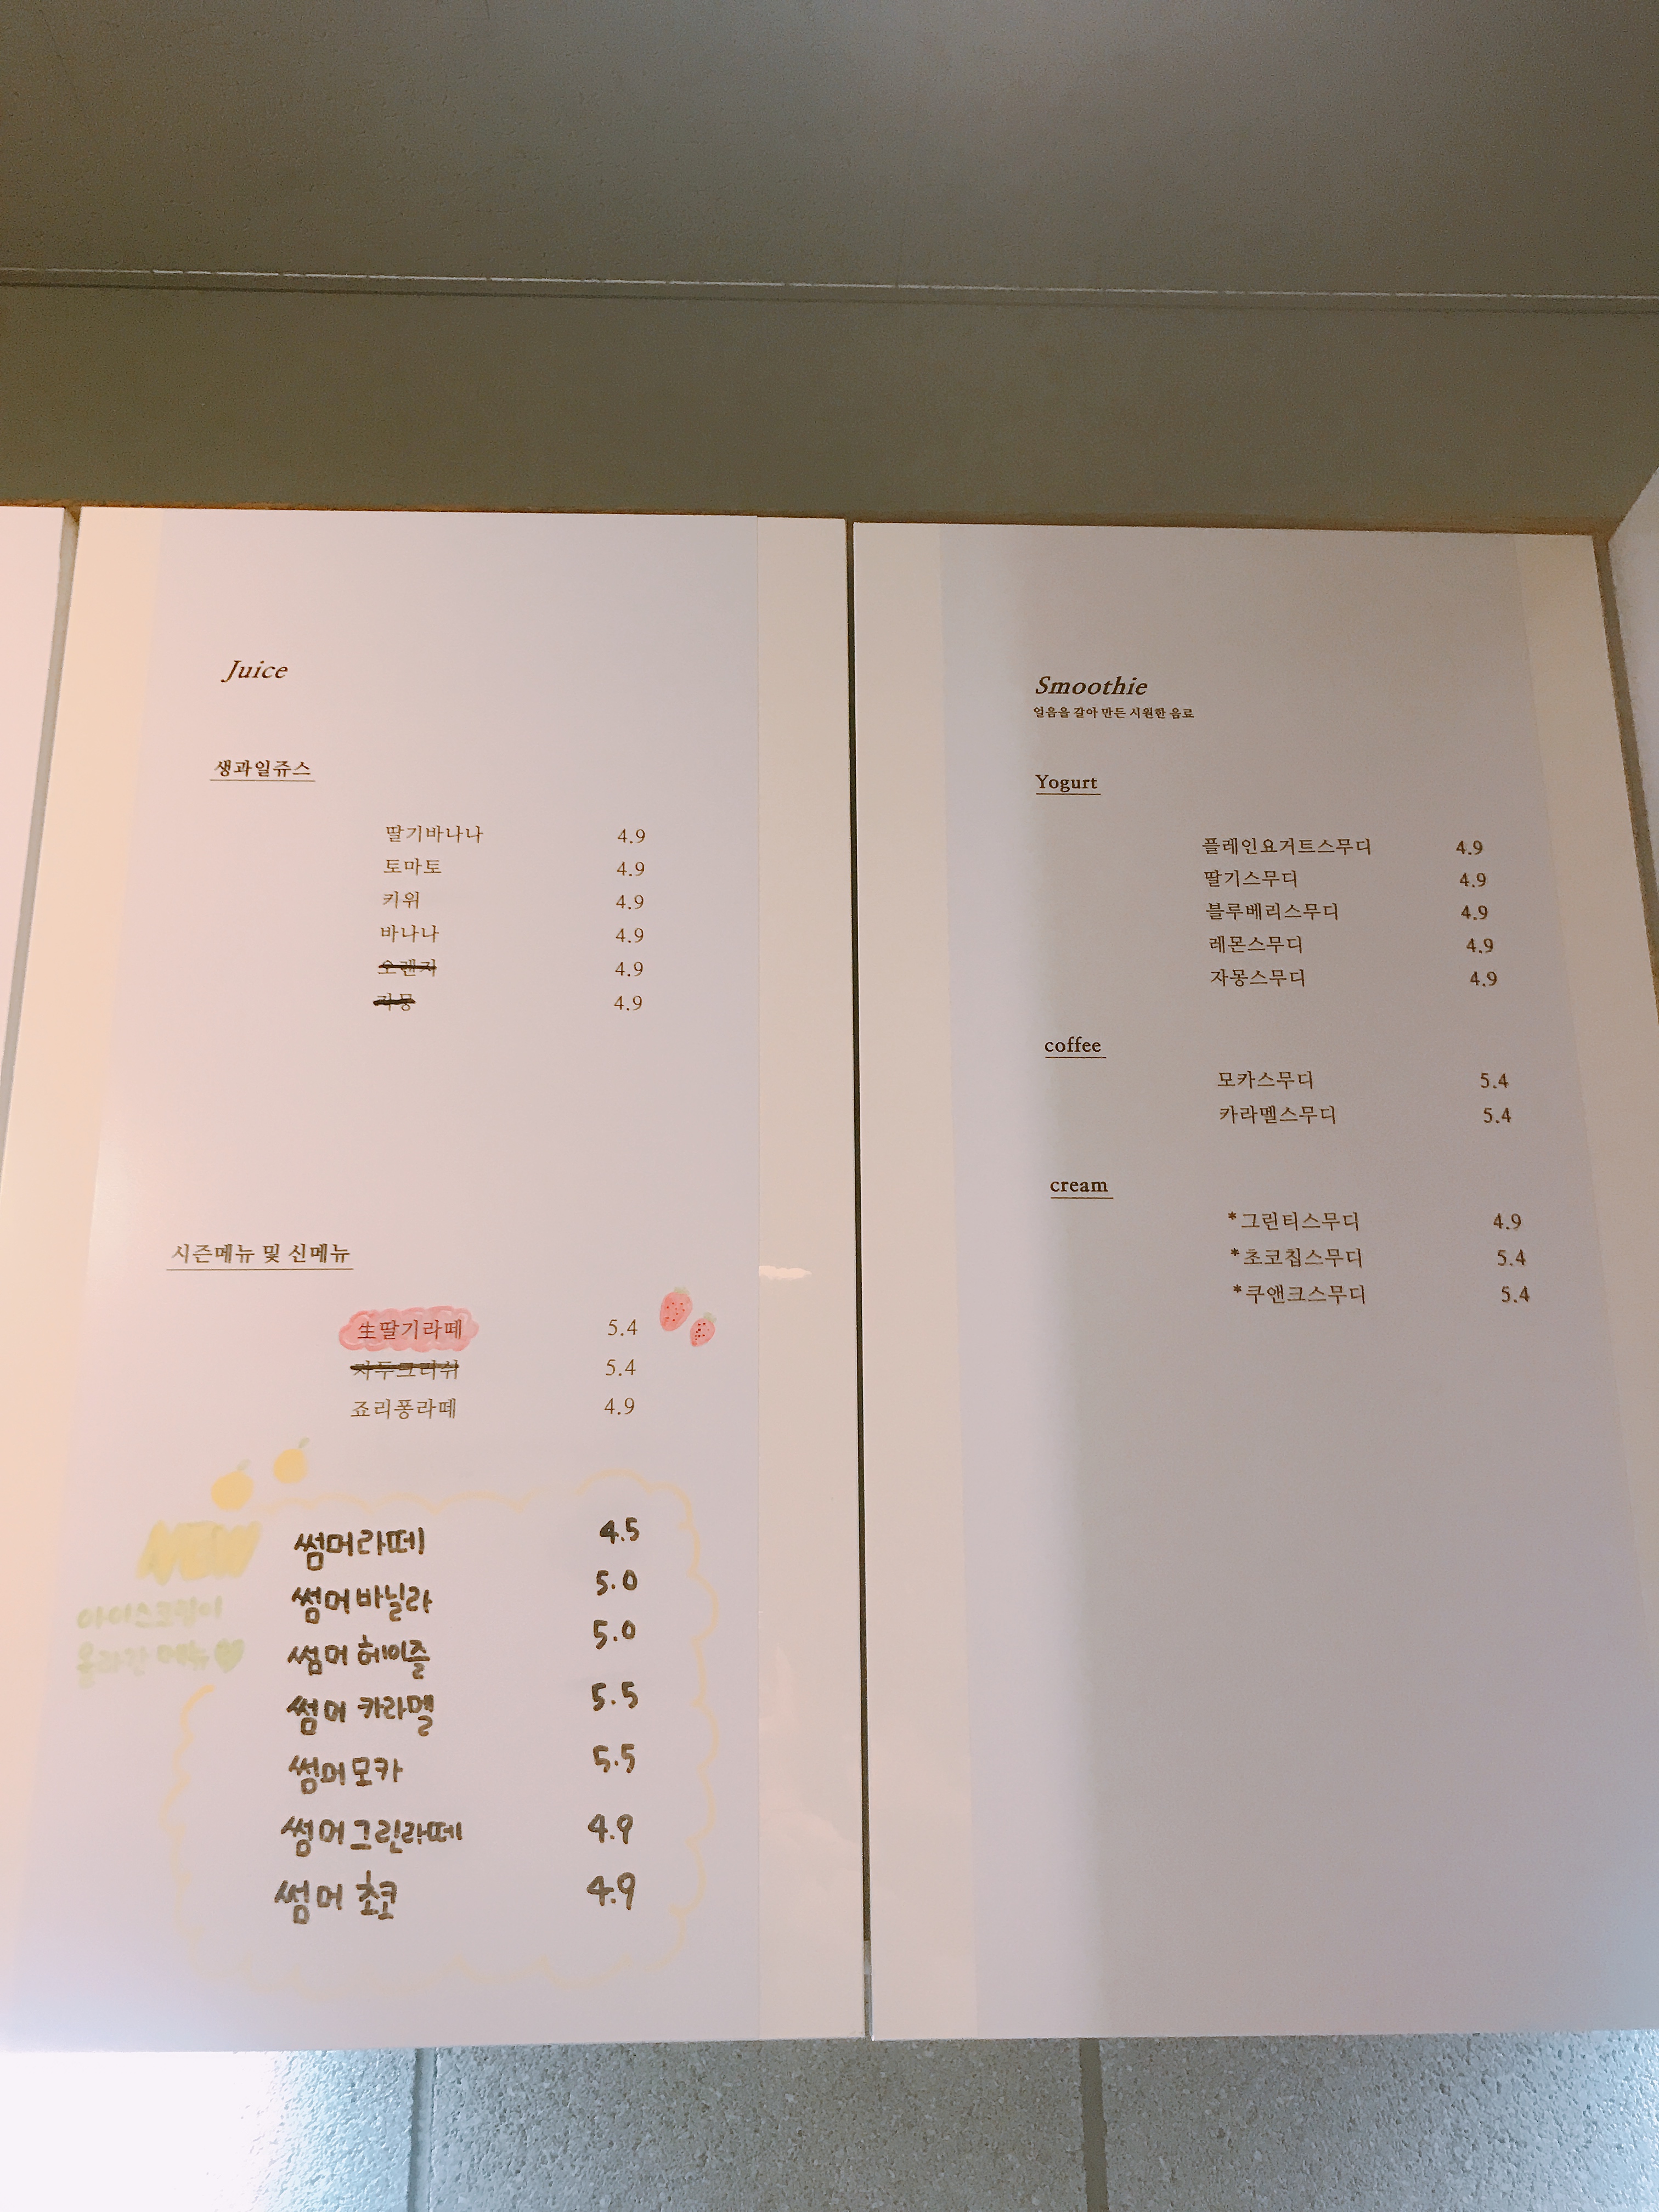 Juice
생과일쥬스
딸기바나나 4.9
토마토 4.9
키위 4.9
바나나 4.9
오렌지 4.9
자몽 4.9
시즌메뉴 및 신메뉴
生딸기라떼 5.4
자두크러쉬 5.4
죠리퐁라떼 4.9
NEW
아이스크림이
올라간 메뉴
썸머라떼 4.5
썸머바닐라 5.0
썸머 헤이즐 5.0
썸머 카라멜 5.5
썸머모카 5.5
썸머그린라떼 4.9
썸머 초코 4.9
Smoothie
얼음을 갈아 만든 시원한 음료
Yogurt
플레인요거트스무디 4.9
딸기스무디 4.9
블루베리스무디 4.9
레몬스무디 4.9
자몽스무디 4.9
coffee
모카스무디 5.4
카라멜스무디 5.4
cream
*그린티스무디 4.9
*초코칩스무디 5.4
*쿠앤크스무디 5.4